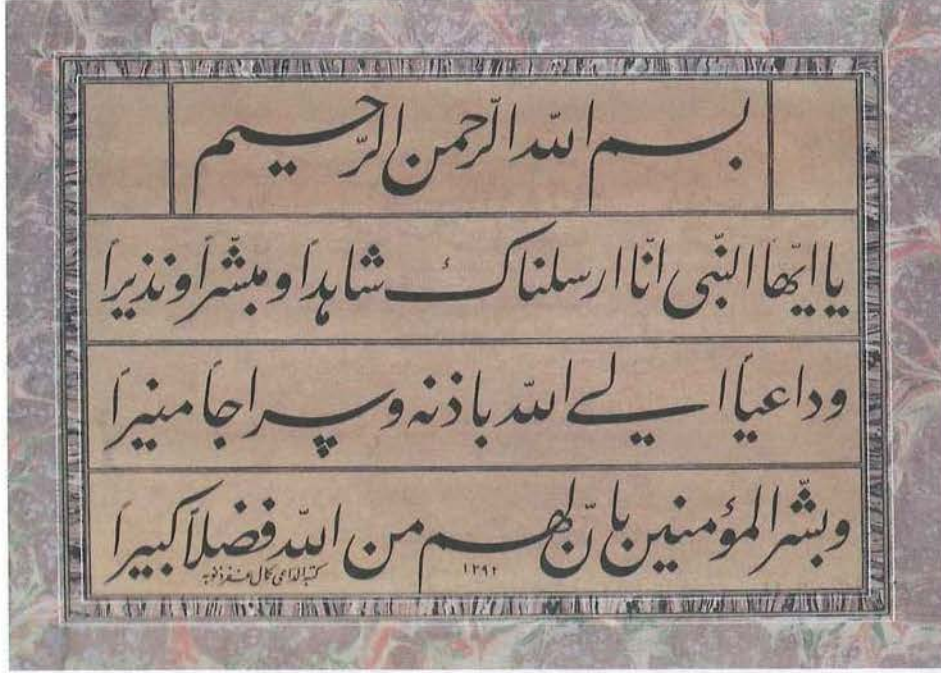 بسم الله الرّحمن الرّحيم
يا ايّها النّبى انّا ارسلناك شاهداً و مبشّراً و نذيراً
وداعياً الى الله باذنه وسراجاً منيراً
وبشّر المؤمنين بانّ لهم من الله فضلاً كبيراً
كتبه الداعى كمال غفر ذنوبه ١٢٩٢